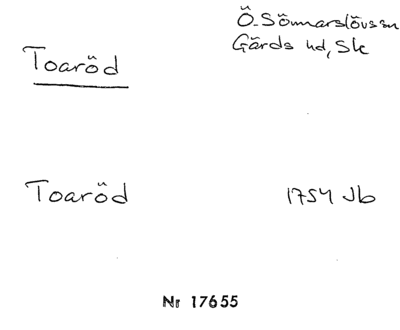 Ö. Sönnarslövs sn
Gärds hd, Sk
Toaröd
Toaröd 1754 Jb
Nr 17655